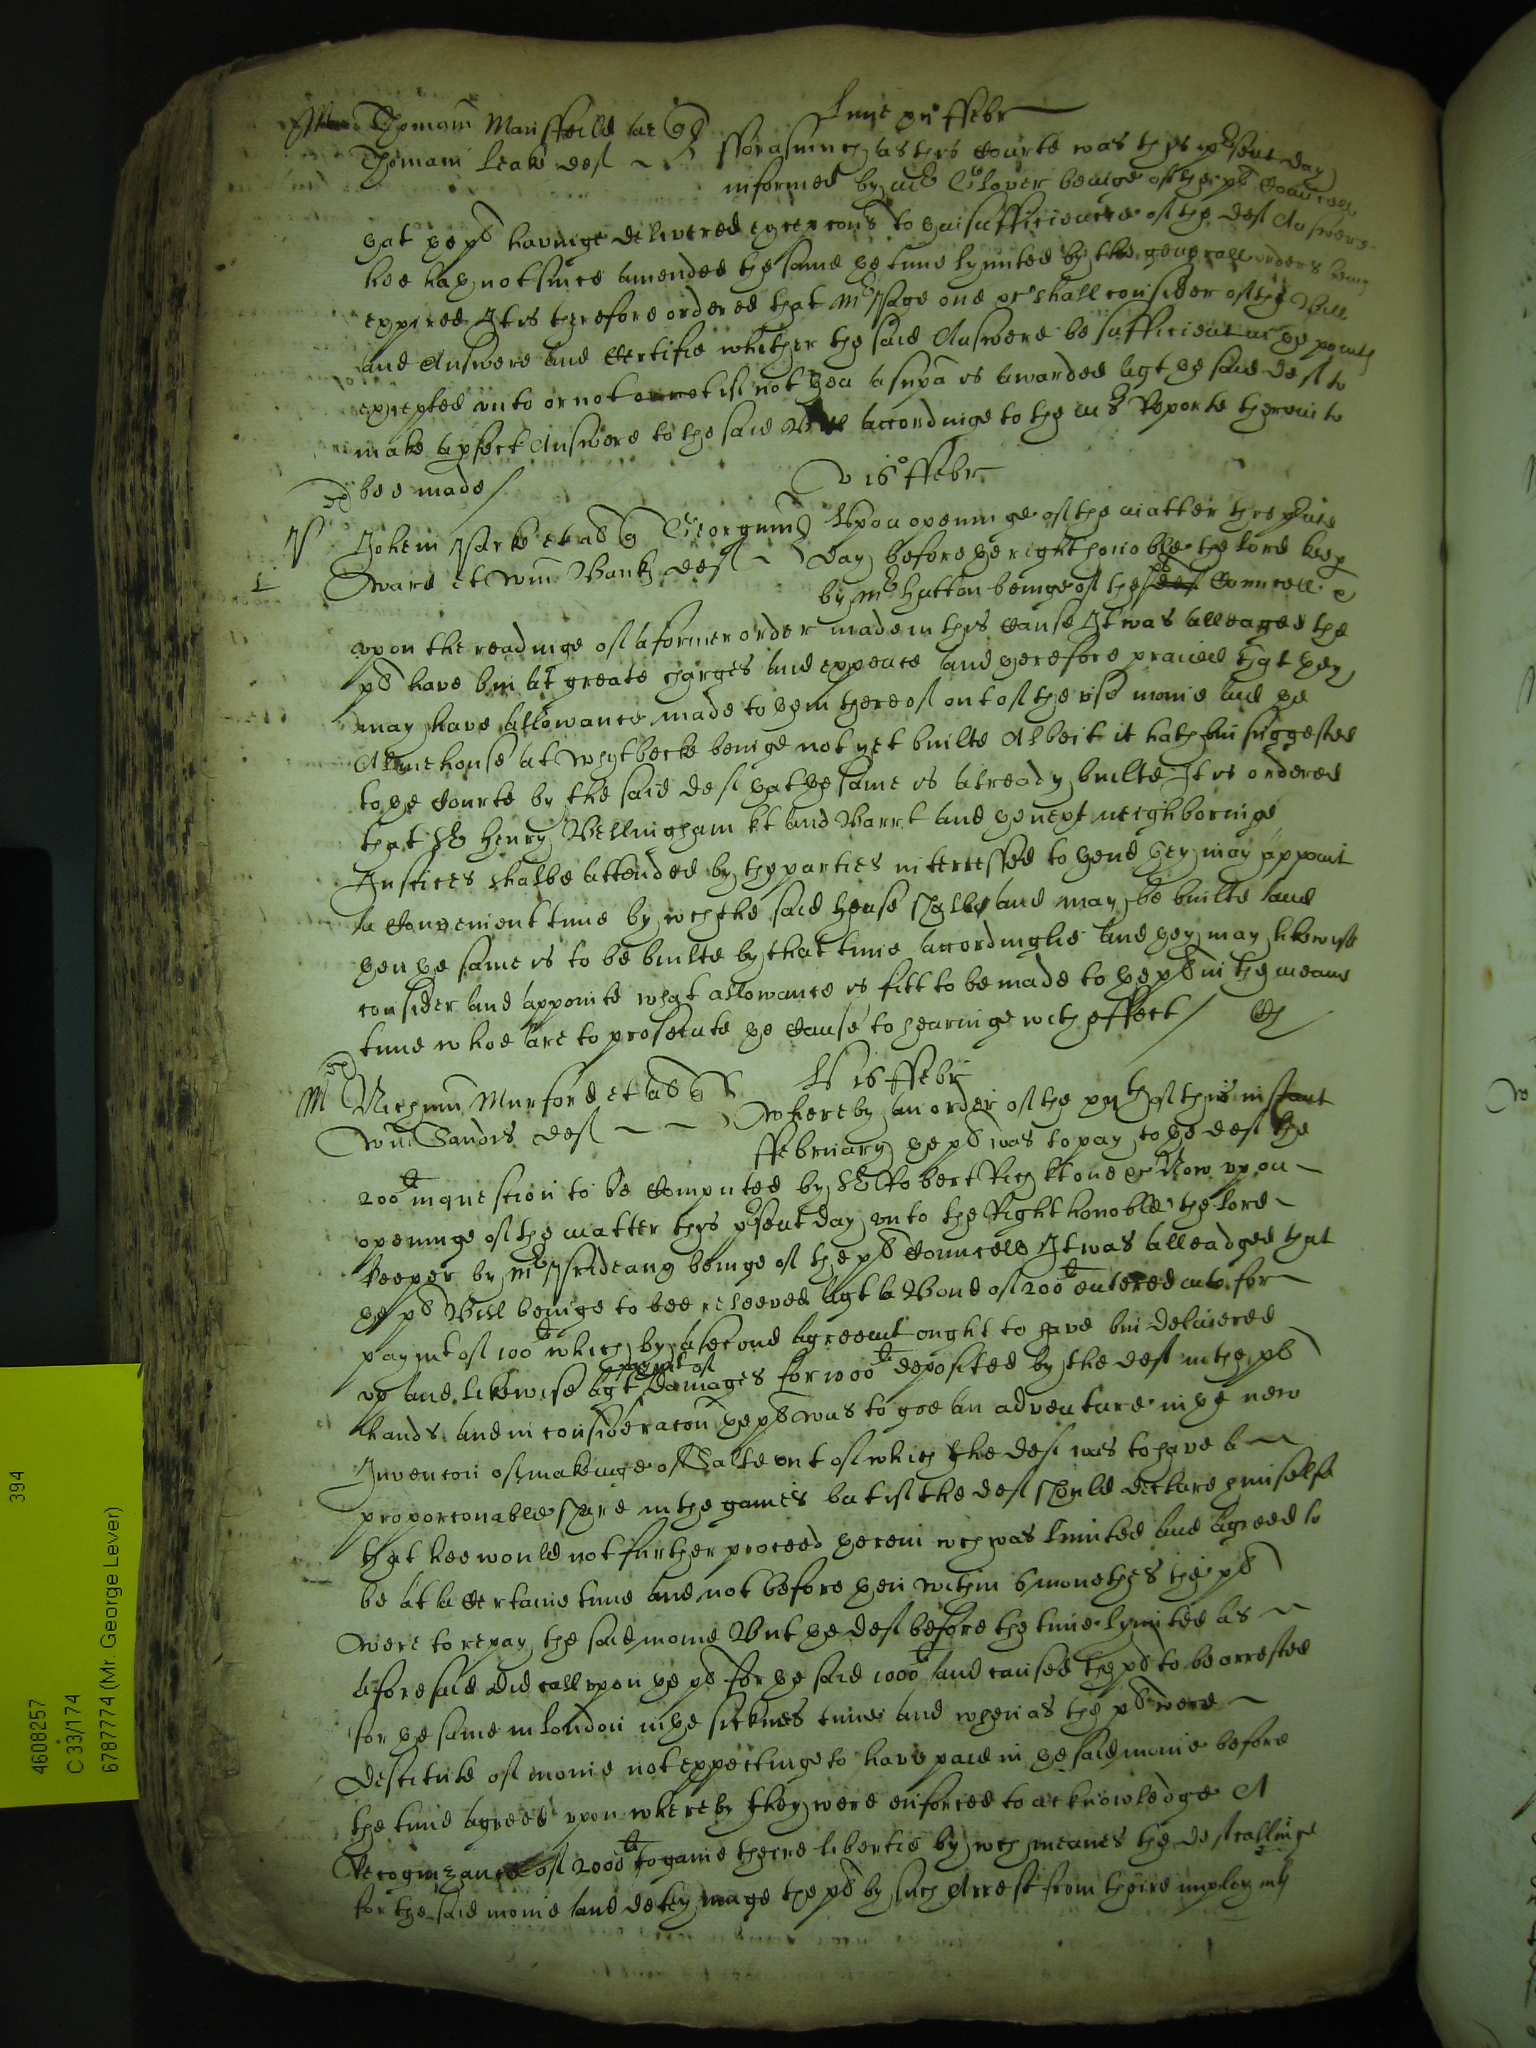 Lune xiii° ffebr
Thomam Mansfeild ar q
Thomam Leake def
fforasmuch as this Courte was this pͬsent day
informed by mr Glover beinge of the pl Councell
yat ye pl havinge delivered excepcons to ye insufficiencie of the def Answere
hee hath not since amended the same ye time lymited by the generall orders being
expired It is therefore ordered that Mr Page one &c shall consider of the Bill
and Answere and Certifie whither the said Answere be sufficient in ye points
excepted unto or not if not yen a supa is awarded agt ye said def to
make a pfect Answere to the said Bill accordinge to the mr Reporte therein to
bee made
v 16° ffebr
P
Johem Parke et al q Georgium
Ward et Willm Bank def
Upon openinge of the matter this psent
day before ye right honoble the lord keep
by Mr Hatton beinge of the def Councell &
upon the readinge of a former order made in this cause It was alleaged the
pl have bin at greate charges and expence and yerefore praied that yey
may have allowance made to yem thereof out of the use monie and ye
Almehouse at Whytbecke beinge not yet builte Albeit it hath bin suggested
to ye Courte by the said def yat ye same is already builte It is ordered
that Sr Henry Bellingham kt and Barrt and ye next neighboringe
Justices shalbe attended by the parties interessed to yend yey may appoint
a Convenient time by wch the said house shalbe and may be builte and
yen ye same is to be builte by that time accordinglie and yey may likewise
consider and appointe what allowance is fitt to be made to ye pl in the meane
time whoe are to prosecute ye Cause to hearinge with effect
M
Nichum Murford et al q
Willm Sandis def
v 16 ffebr
Whereby an order of the xiijth of this instant
ffebruary ye pl was to pay to ye def the
200li in question to be Computed by Sr Robert Rich kt one &c Now upon
openinge of the matter this pͬsent day unto the Right honoble the lord
keeper by Mr Prideaux beinge of the pl Councell It was alleadged that
ye pl Bill beinge to bee releeved agt a Bond of 200li entered into for
paymt of 100li which by a second agreemt ought to have bin delivered
up and likewise agt paymt of damages for 1000li deposited by the def in the pl
hands and in consideracon ye pl was to goe an adventure in ye new
Invencon of makinge of Salte out of which the def was to have a
proporconable share in the games but if the def should declare himselfe
that hee would not further proceed yerein wch was limited and agreed to
be at a certaine time and not before yen within 6 monethes the pl
were to repay the said monie But ye def before the time lymited as
aforesaid did call upon ye pl for ye said 1000li and caused the pl to be arrested
for ye same in london in ye sicknes time and when as the pl were
destitute of monie not expectinge to have paid in ye said monie before
the time agreed upon whereby they were enforced to acknowledge A
Recognizance of 2000li to gaine theire libertie by wch meanes the def callinge
for the said monie and detayninge the pl by such Arrest from theire imploymts
394
4608257
C 33/174
6787774 (Mr. George Lever)